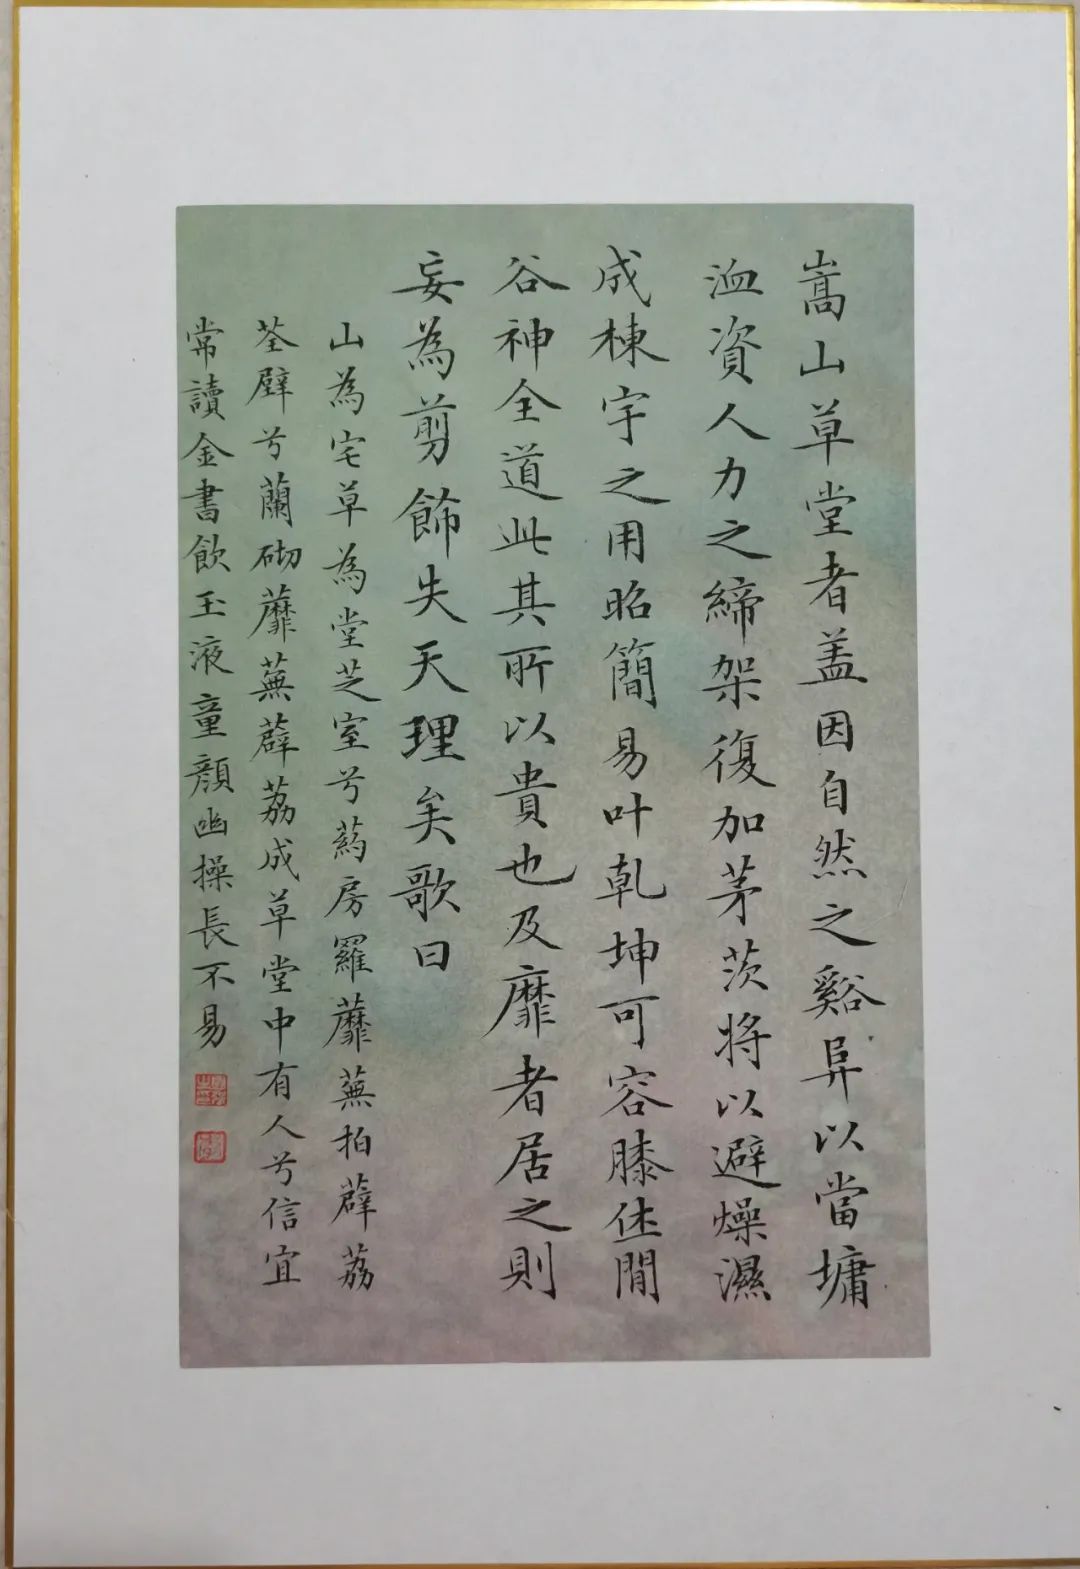 嵩山草堂者盖因自然之谿阜以當墉
洫資人力之締架復加茅茨將以避燥濕
成棟宇之用昭簡易叶乾坤可容膝休閒
谷神全道此其所以貴也及靡者居之則
妄為剪飾失天理矣歌曰
山為宅草為堂芝室兮葯房羅蘼蕪拍薜荔
荃壁兮蘭砌蘼蕪薜荔成草堂中有人兮信宜
常讀金書飲玉液童顏幽操長不易